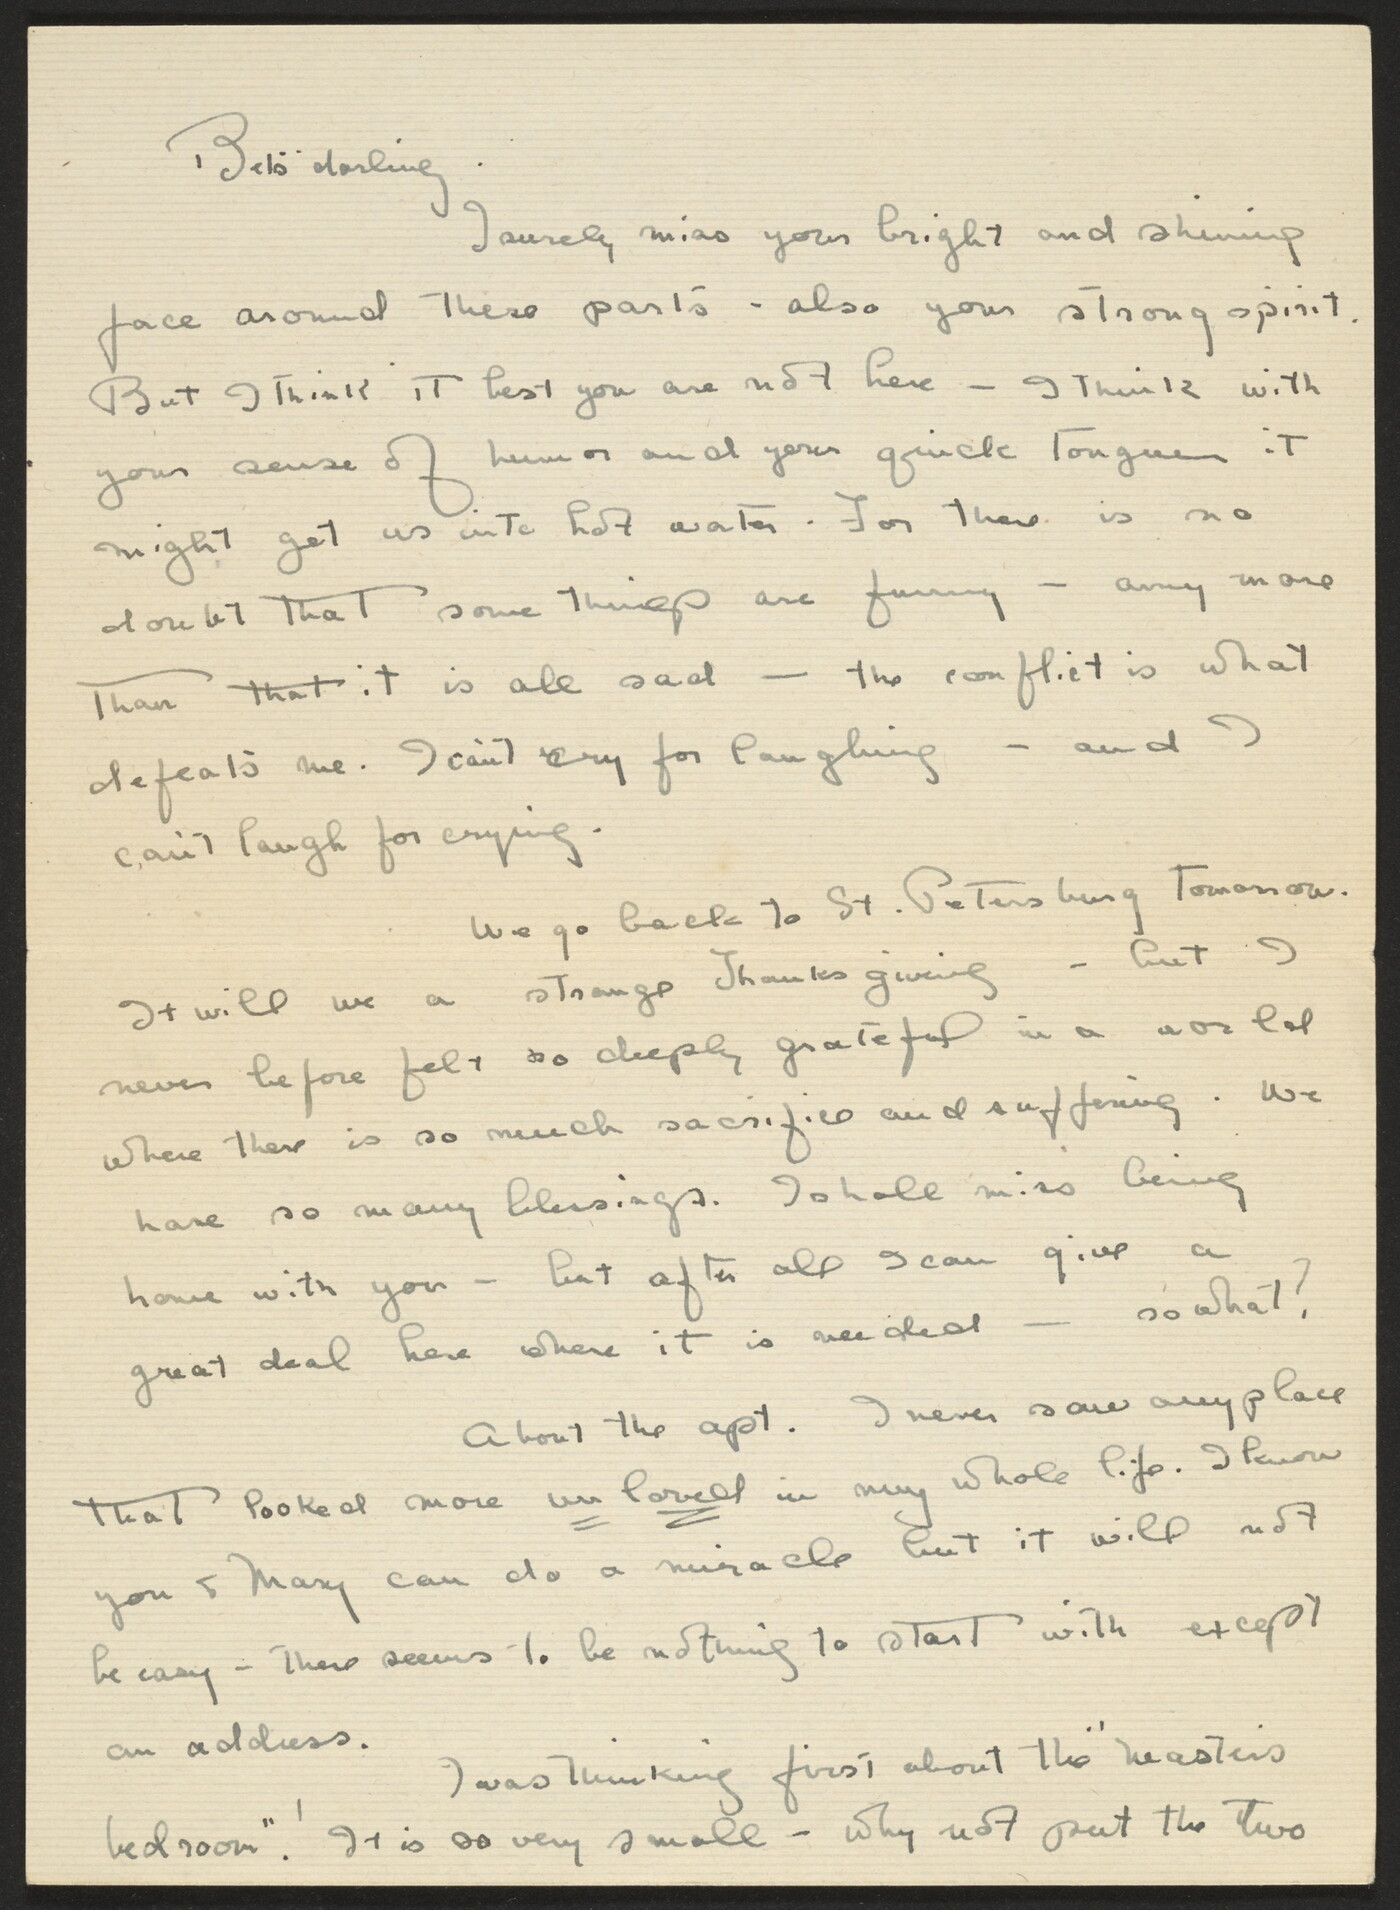 Bets darling.
I surely miss your bright and shining
face around these parts - also your strong spirit.
But I think it best you are not here - I think with
your sense of humor and your quick tongue it
might get us into hot water. For there is no
doubt that some things are funny - any more
than that it is all sad - the conflict is what
defeats me. I can't cry for laughing - and I
can't laugh for crying.
We go back to St. Petersburg tomorrow.
It will be a strange Thanksgiving - but I
never before felt so deeply grateful in a world
where there is so much sacrifice and suffering. We
have so many blessings. I shall miss being
home with you - but after all I can give a
great deal here where it is needed - so what?
About the apt. I never saw any place
that looked more un loved in my whole life. I know
you & Mary can do a miracle but it will not
be easy - there seems to be nothing to start with except
an address.
I was thinking first about the "master's
bedroom"! It is so very small - why not put the two